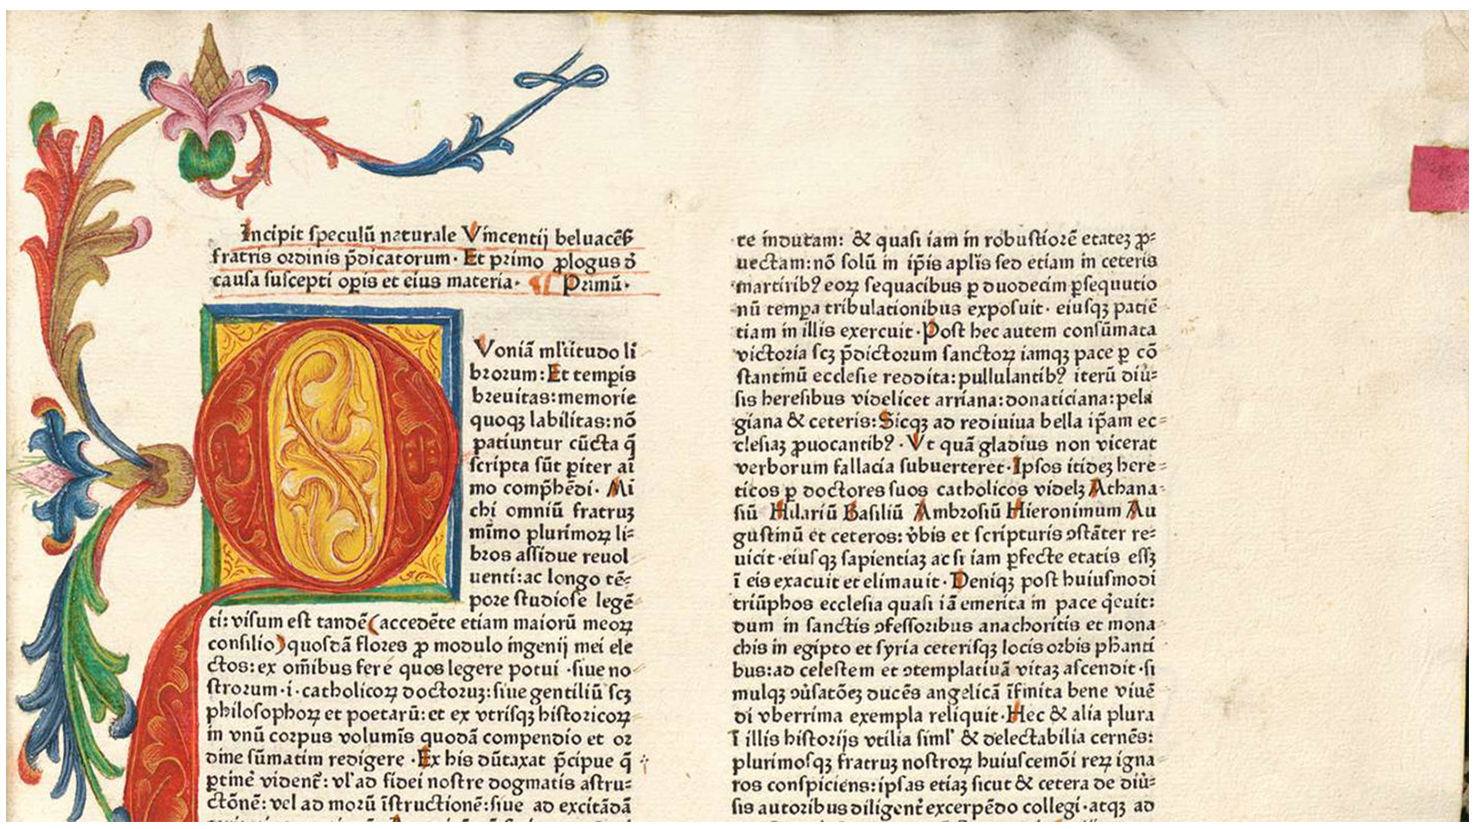 Incipit speculū naturale Vincentij beluacēs̄
fratris ordinis p̄dicatorum· Et primo ꝓlogus ð
causa suscepti opis et eius materia· Primū·
Voniā ml'titudo li
brorum: Et tempis
breuitas: memorie
quoqꝫ labilitas: nō
patiuntur cūcta q̄
scripta sūt piter ai
mo comp̄hēdi· Mi
chi omniū fratruꝫ
mimo plurimoꝝ li=
bros assidue reuol
uenti: ac longo tē=
pore studiose legē
ti: visum est tandē (accedēte etiam maiorū meoꝝ
consilio) quosdā flores ꝓ modulo ingenij mei ele
ctos: ex om̄ibus fere quos legere potui ·siue no
strorum ·i· catholicoꝝ doctoruꝫ: siue gentiliū scꝫ
philosophoꝝ et poetarū: et ex vtrisqꝫ historicoꝝ
in vnū corpus volumīs quodā compendio et or
dine sūmatim redigere ·Ex his dūtaxat p̄cipue q̄
ꝑtinē videnť: vl' ad fidei nostre dogmatis astru=
ctōnē: vel ad morū īstructionē: siue ad excitādā
te indutam: & quasi iam in robustiorē etateꝫ ꝓ=
uectam: nō solū in ip̄is apl'is sed etiam in ceteris
martirib9 eoꝝ sequacibus ꝑ duodecim ꝑsequutio
nū tempa tribulationibus exposuit· eiusqꝫ patiē
tiam in illis exercuit· Post hec autem consūmata
victoria scꝫ p̄dictorum sanctoꝝ iamqꝫ pace ꝑ cō
stantinū ecclesie reddita: pullulantib9 iterū diū=
sis heresibus videlicet arriana: donaticiana: pela
giana & ceteris: Sicqꝫ ad rediuiua bella ip̄am ec=
clesiaꝫ ꝓuocantib9 ·Vt quā gladius non vicerat
verborum fallacia subuerteret· Ipsos itideꝫ here=
ticos ꝑ doctores suos catholicos videlꝫ Athana=
siū Hilariū Basiliū Ambrosiū Hieronimum Au
gustinū et ceteros: v̄bis et scripturis ꝯstāter re=
uicit· eiusqꝫ sapientiaꝫ ac si iam ꝑfecte etatis essꝫ
ī eis exacuit et elimauit· Deniqꝫ post huiusmodi
triūphos ecclesia quasi iā emerita in pace q̇euit:
dum in sanctis ꝯfessoribus anachoritis et mona
chis in egipto et syria ceterisqꝫ locis orbis ph̄anti
bus: ad celestem et ꝯtemplatiuā vitaꝫ ascendit· si
mulqꝫ ꝯūsatōeꝫ ducēs angelicā īfinita bene viuē
di vberrima exempla reliquit· Hec & alia plura
ī illis historijs vtilia siml' & delectabilia cernēs:
plurimosqꝫ fratruꝫ nostroꝝ huiuscemōi reꝝ igna=
ros conspiciens: ipsas etiaꝫ sicut & cetera de diū=
sis autoribus diligenť excerpēdo collegi· atqꝫ ad